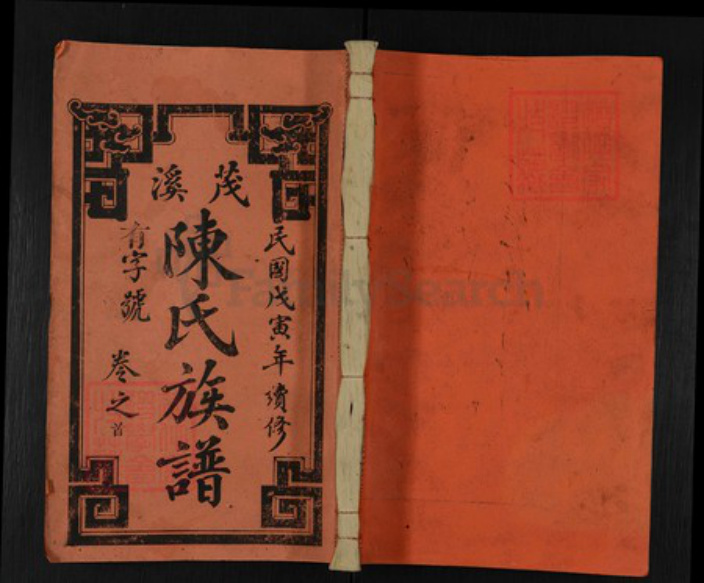 民國戊寅年續修
茂溪
陳氏族譜
有字號 卷之首
FamilySearch